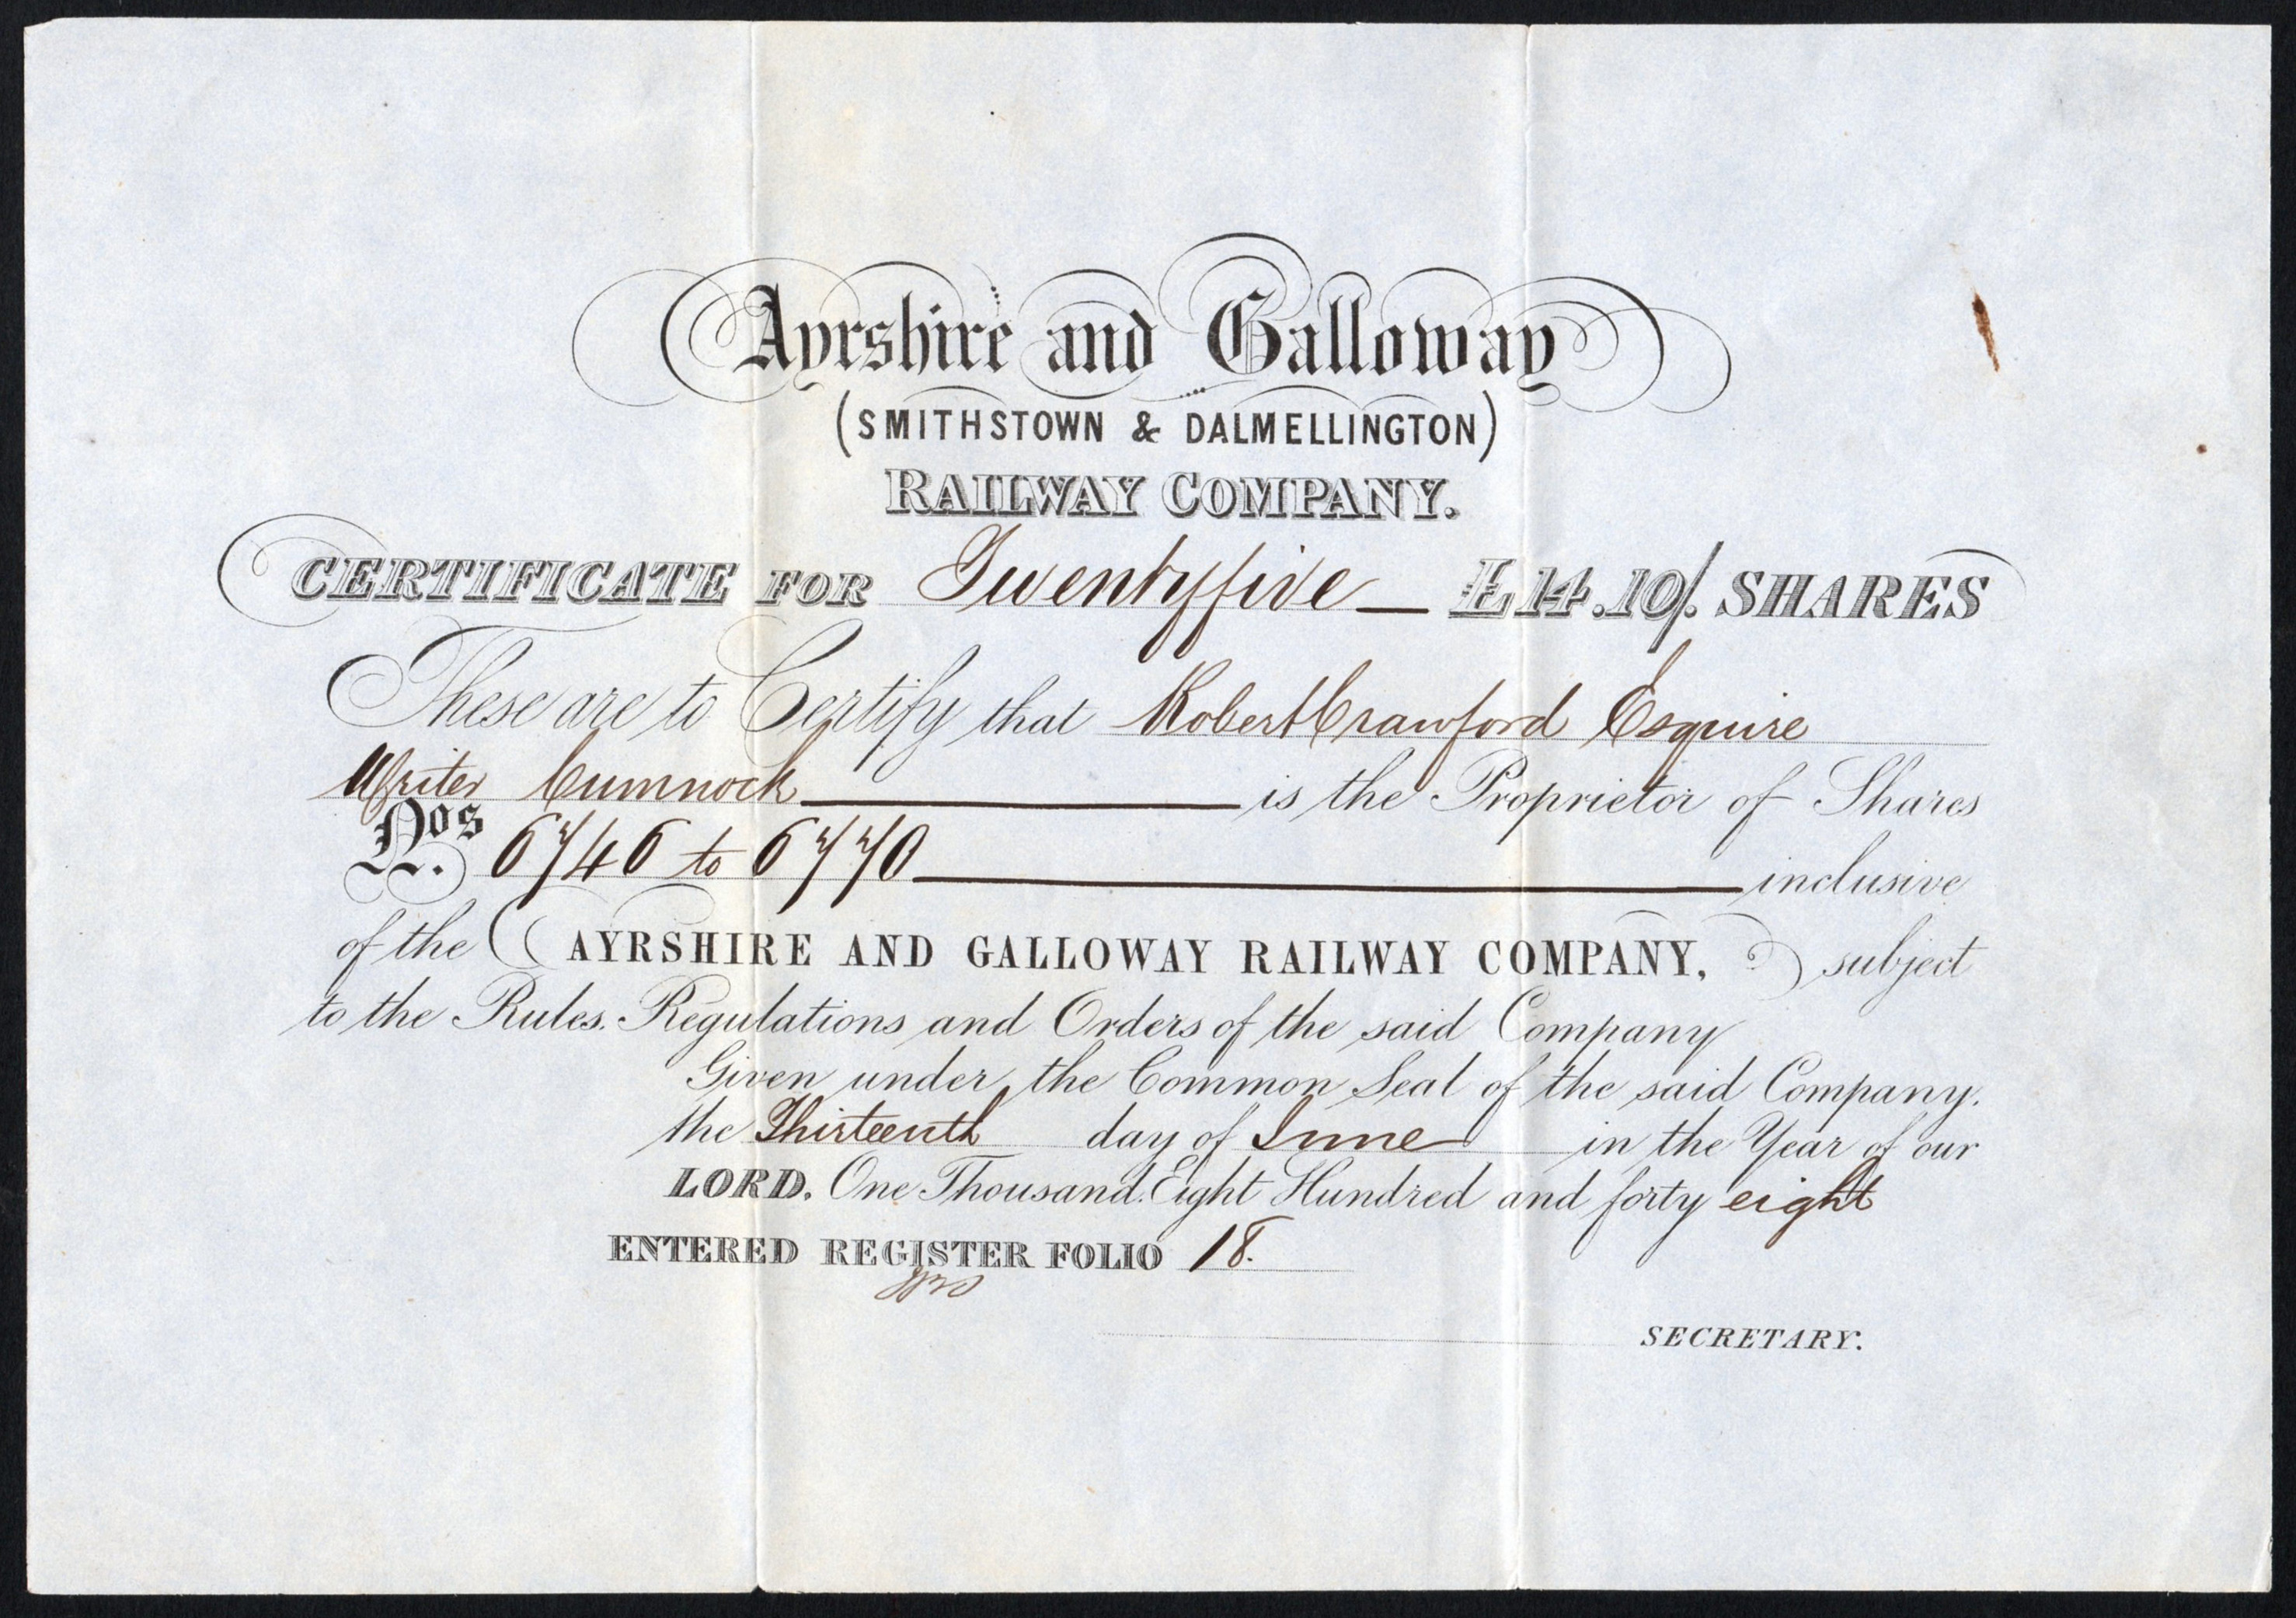 Ayrshire and Galloway
(SMITHSTOWN & DALMELLINGTON)
RAILWAY COMPANY.
CERTIFICATE FOR Twentyfive £14.10/. SHARES
These are to Certify that Robert Crawford Esquire
Writer Cumnock is the Proprietor of Shares
Nos. 6746 to 6770 inclusive
of the AYRSHIRE AND GALLOWAY RAILWAY COMPANY, subject
to the Rules. Regulations and Orders of the said Company
Given under the Common Seal of the said Company.
the Thirteenth day of June in the Year of our
LORD. One Thousand. Eight Hundred and forty eight
ENTERED REGISTER FOLIO 18.
SECRETARY.